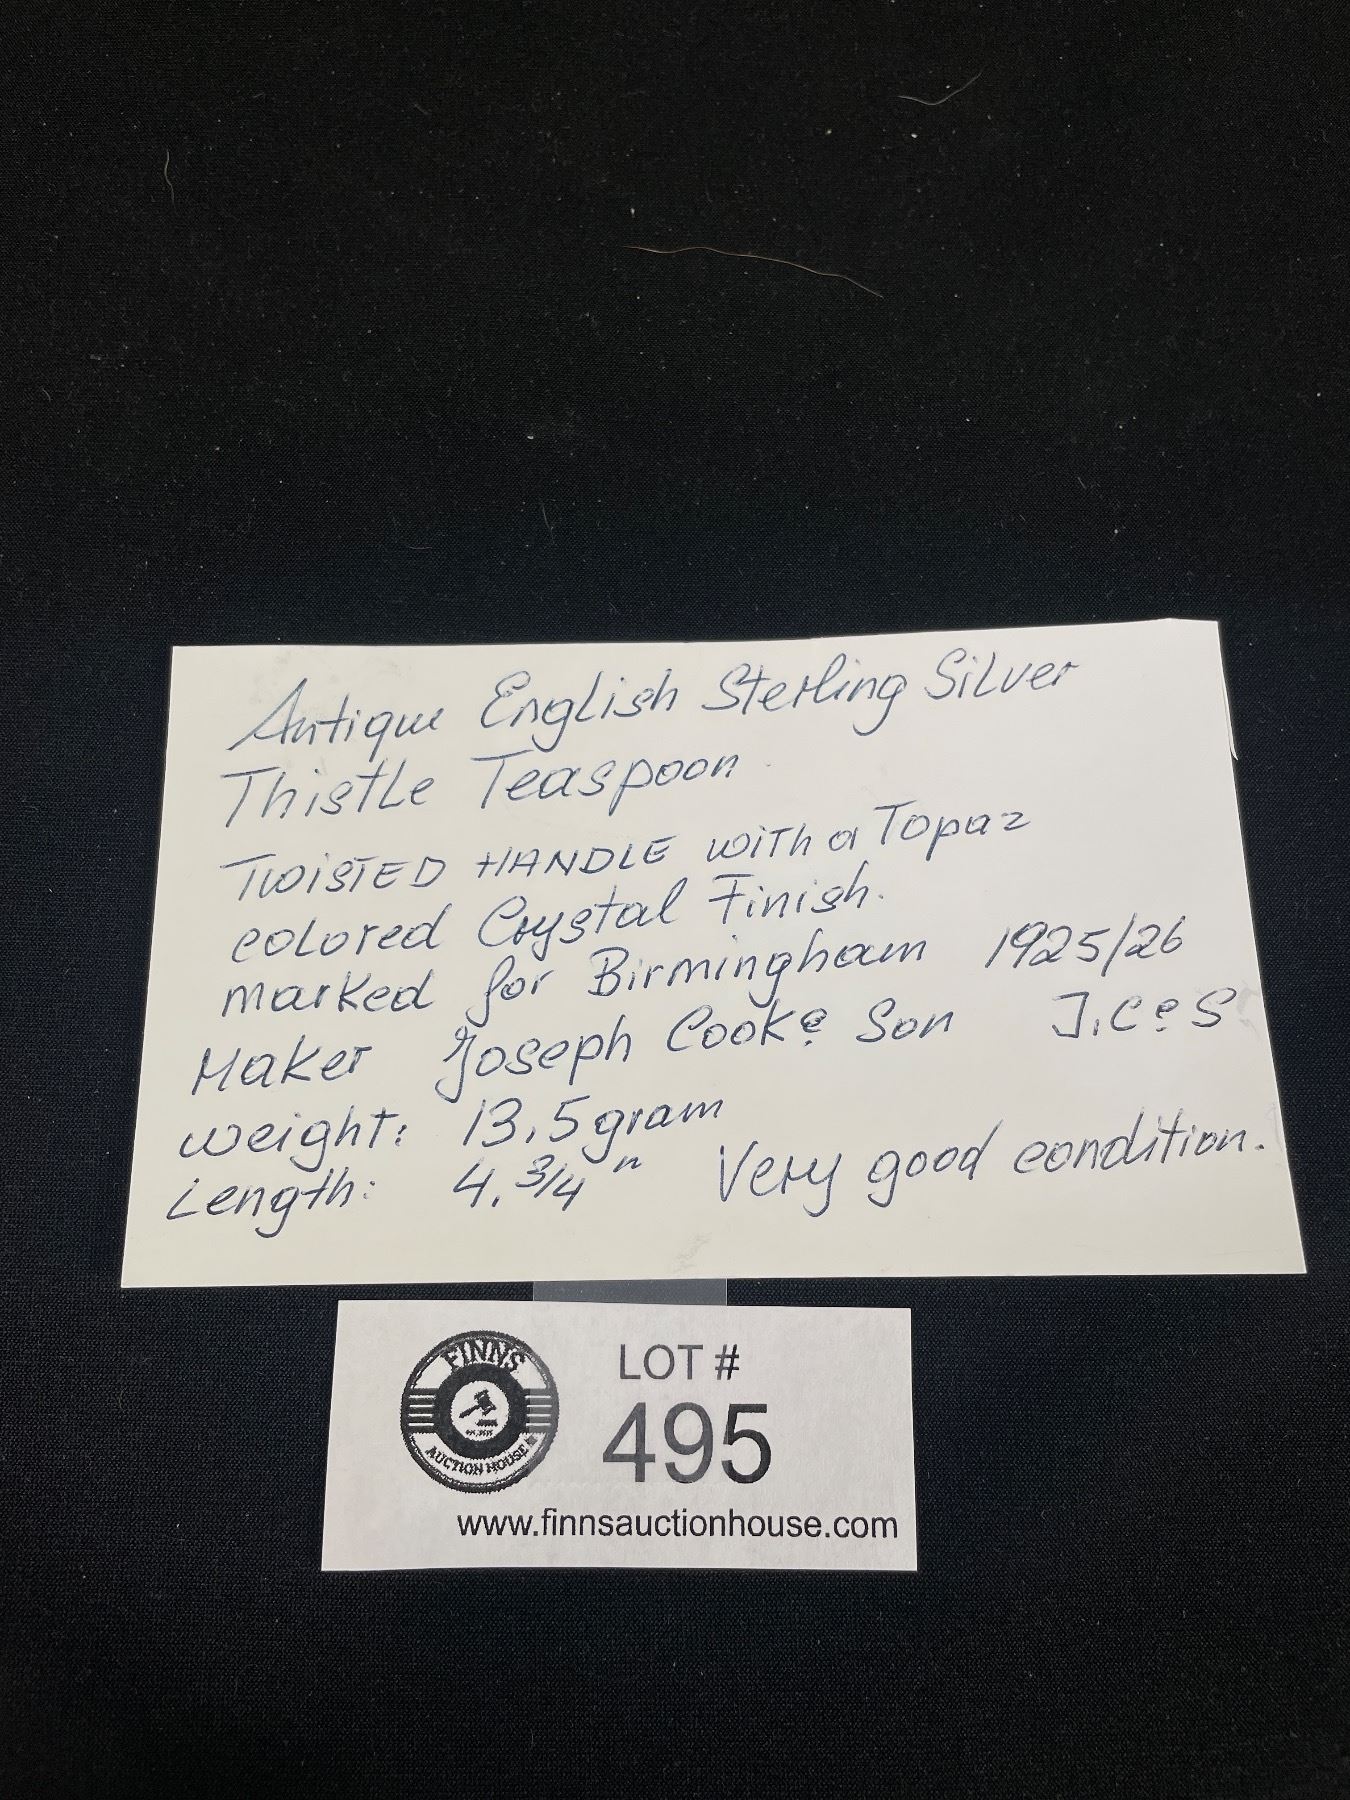 Antique English Sterling Silver
Thistle Teaspoon
TWISTED HANDLE with a Topaz
colored Crystal Finish.
marked for Birmingham 1925/26
Maker Joseph Cook & Son J.C & S
weight: 13,5 gram
Length: 4. 3/4 " Very good condition.
FINNS
AUCTION HOUSE
LOT #
495
www.finnsauctionhouse.com